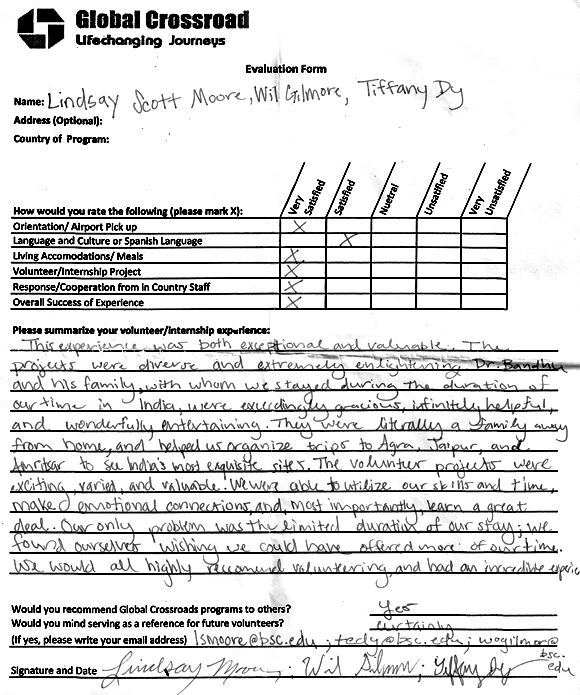 Global Crossroad
Lifechanging Journeys
Evaluation Form
Name: Lindsay Scott Moore, Wil Gilmore, Tiffany Dy
Address (Optional):
Country of Program:
How would you rate the following (please mark X): Very Satisfied Satisfied Nuetral Unsatified Very Unsatisfied
Orientation/ Airport Pick up X
Language and Culture or Spanish Language X
Living Accomodations/ Meals X
Volunteer/Internship Project X
Response/Cooperation from in Country Staff X
Overall Success of Experience X
Please summarize your volunteer/internship experience:
This experience was both exceptional and valuable. The
projects were diverse and extremely enlightening. Dr. Bandhu
and his family, with whom we stayed during the duration of
our time in India, were exceedingly gracious, infinitely helpful,
and wonderfully entertaining. They were literally a family away
from home, and helped us organize trips to Agra, Jaipur, and
Amritsar to see India's most exquisite sites. The volunter projects were
exciting, varied, and valuable! We were able to utilize our skills and time,
make emotional connections, and, most importantly, learn a great
deal. Our only problem was the limited duration of our stay; we
found ourselves wishing we could have offered more of our time.
We would all highly recomend volunteering, and had an incredible experie
Would you recommend Global Crossroads programs to others? Yes
Would you mind serving as a reference for future volunteers? certainly
(If yes, please write your email address) lsmoore@bsc.edu ; tcdy@bsc.edu ; wogilmor@
bsc.
edu
Signature and Date Lindsay Moore ; Wil Gilmore ; Tiffany Dy